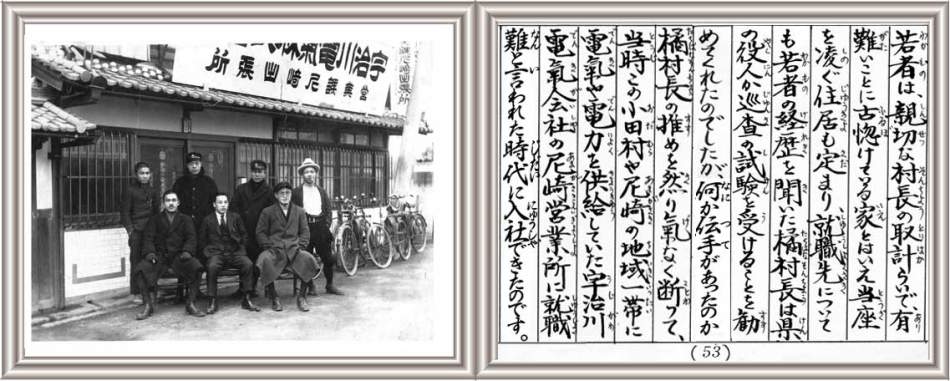 宇治川電氣株
営業課尼崎出張所
若者は、親切な村長の取計らいで、有
難いことに古惚けている家とはいえ当座
を凌ぐ住居も定まり、就職先について
も若者の経歴を聞いた橘村長は県
の役人か巡査の試験を受けることを勧
めてくれたのでしたが、何か伝手があったのか
橘村長の推めを然り氣なく断って、
当時この小田村や尼崎の地域一帯に
電氣や電力を供給していた宇治川
電氣会社の尼崎営業所に就職
難と言われた時代に入社できたのです。
(53)